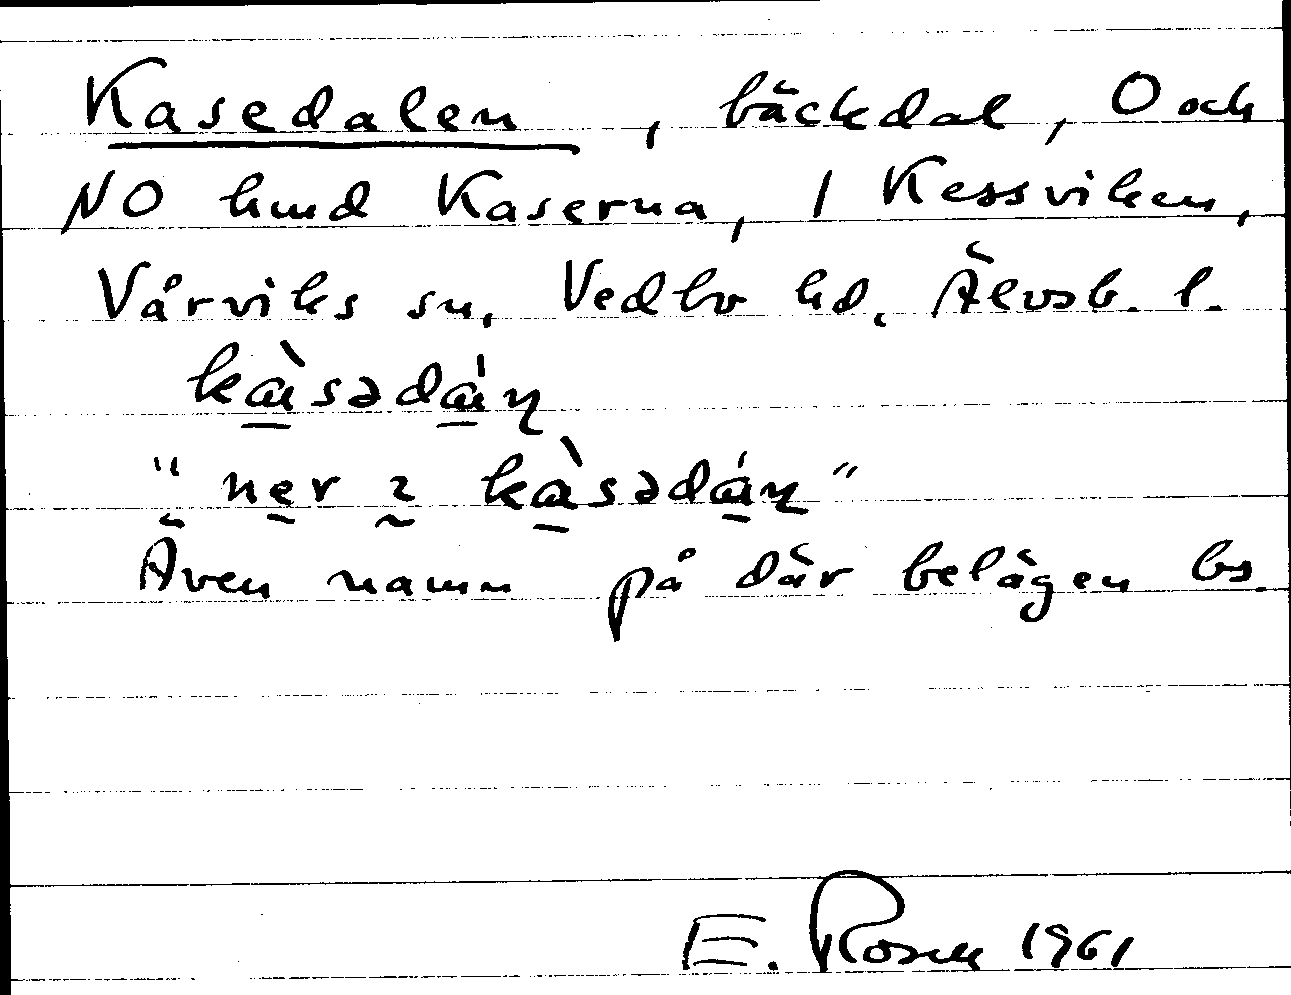 Kasedalen, bäckdal, O och
NO hmd Kaserna, 1 Kessviken,
Vårviks sn, Vedbo hd, Älvsb. l.
kàsədáɳ
"ner ɪ kàsədáɳ"
Även namn på där belägen bs.
E. Rosell 1961